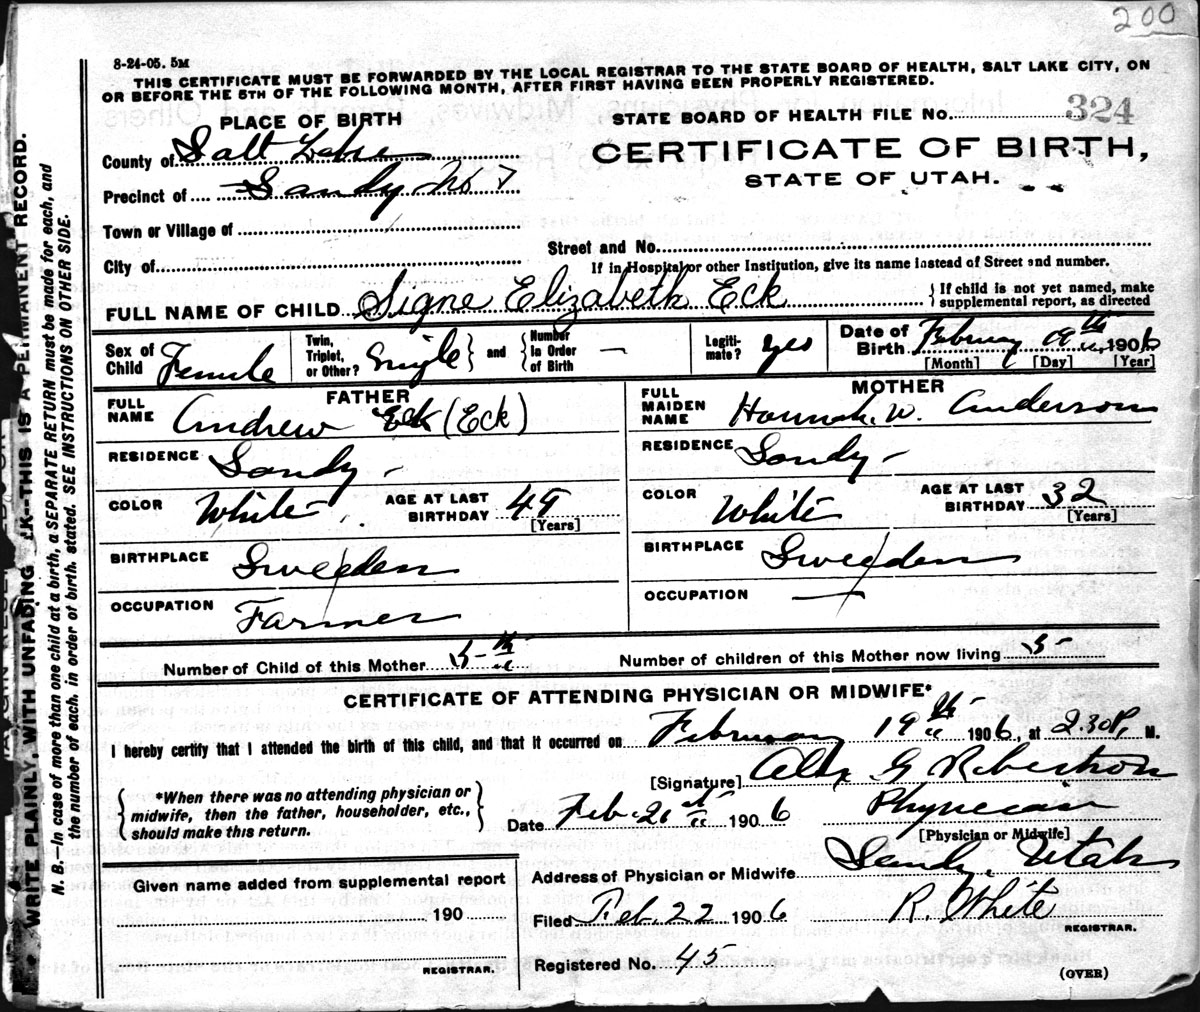 200
8-24-05. 5M
THIS CERTIFICATE MUST BE FORWARDED BY THE LOCAL REGISTRAR TO THE STATE BOARD OF HEALTH, SALT LAKE CITY, ON
OR BEFORE THE 5TH OF THE FOLLOWING MONTH, AFTER FIRST HAVING BEEN PROPERLY REGISTERED.
PLACE OF BIRTH
STATE BOARD OF HEALTH FILE No. 324
County of Salt Lake
CERTIFICATE OF BIRTH,
STATE OF UTAH.
Precinct of Sandy No 7
Town or Village of
Street and No.
City of
If in Hospital or other Institution, give its name instead of Street and number.
FULL NAME OF CHILD Signe Elizabeth Eck
If child is not yet named, make supplemental report, as directed
Sex of Child Female
Twin, Triplet, or Other? Single
and Number in Order of Birth —
Legitimate? yes
Date of Birth February 19th, 1906
[Month] [Day] [Year]
FATHER
MOTHER
FULL NAME Andrew Eck (Eck)
FULL MAIDEN NAME Hannah. W. Anderson
RESIDENCE Sandy -
RESIDENCE Sandy -
COLOR White
AGE AT LAST BIRTHDAY 49 [Years]
COLOR White
AGE AT LAST BIRTHDAY 32 [Years]
BIRTHPLACE Sweden
BIRTHPLACE Sweden
OCCUPATION Farmer
OCCUPATION —
Number of Child of this Mother 5th
Number of children of this Mother now living 5
CERTIFICATE OF ATTENDING PHYSICIAN OR MIDWIFE*
I hereby certify that I attended the birth of this child, and that it occurred on February 19th 1906, at 2.30 P. M.
[Signature] Alex G Robertson
*When there was no attending physician or
midwife, then the father, householder, etc.,
should make this return.
Date Feb. 21st 1906
Physician
[Physician or Midwife]
Address of Physician or Midwife Sandy. Utah
Given name added from supplemental report
190
REGISTRAR.
Filed Feb. 22 1906
R. White
REGISTRAR.
Registered No. 45
(OVER)
WRITE PLAINLY, WITH UNFADING INK--THIS IS A PERMANENT RECORD.
N. B.—In case of more than one child at a birth, a SEPARATE RETURN must be made for each, and
the number of each, in order of birth, stated. SEE INSTRUCTIONS ON OTHER SIDE.